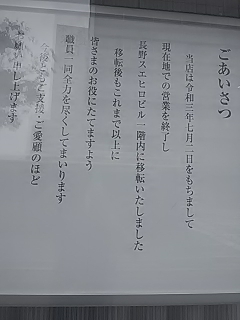 ごあいさつ
当店は令和三年七月二日をもちまして
現在地での営業を終了し
長野スエヒロビル一階内に移転いたしました
移転後もこれまで以上に
皆さまのお役にたてますよう
職員一同全力を尽くしてまいります
今後ともご支援・ご愛顧のほど
お願い申し上げます